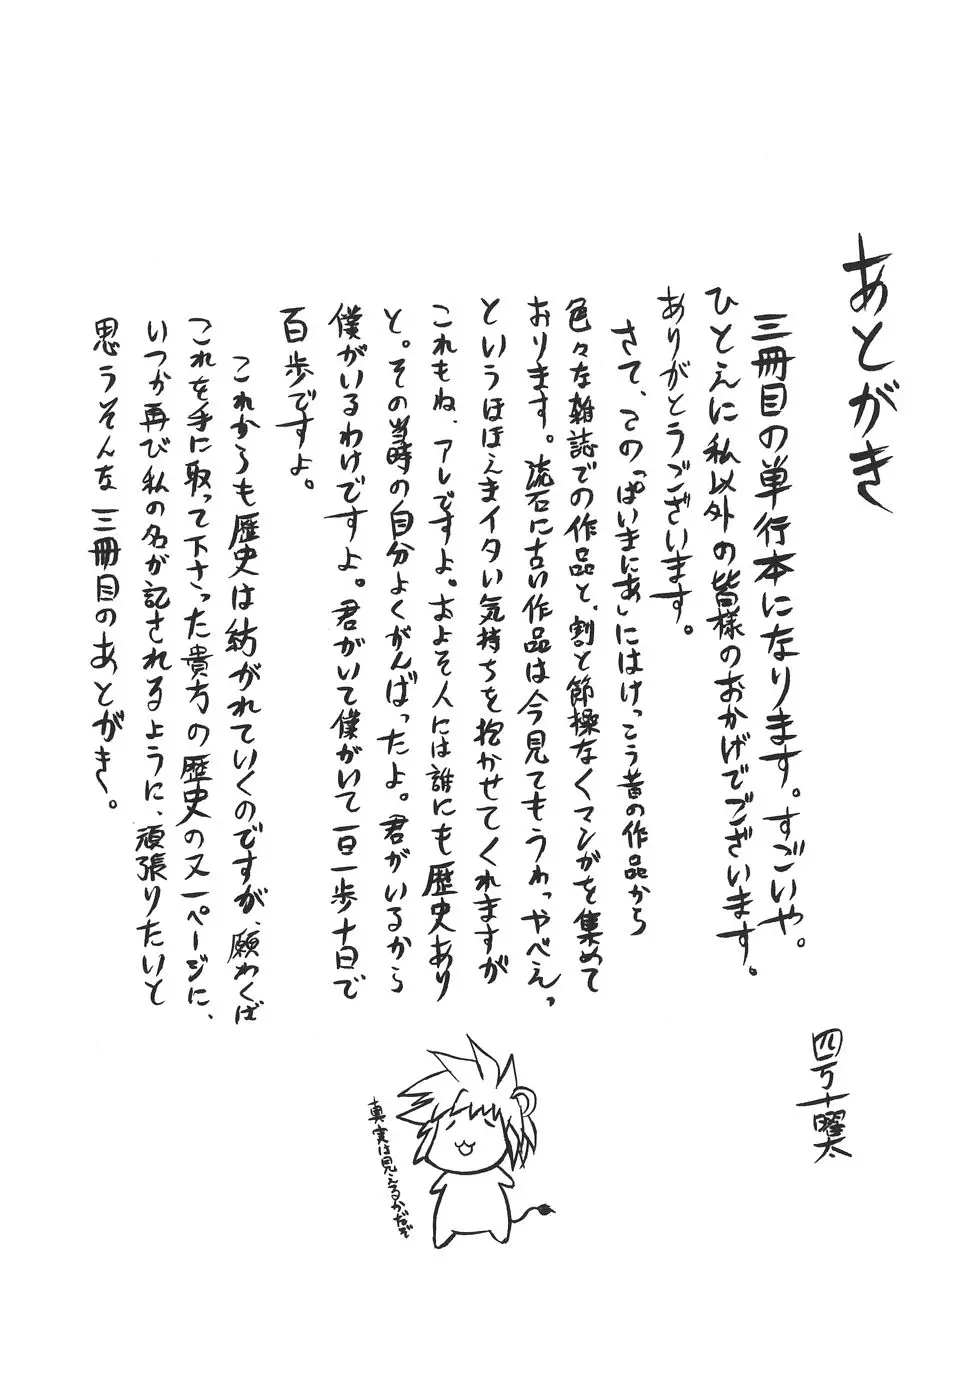 あとがき
三冊目の単行本になります。すごいや。
ひとえに私以外の皆様のおかげでございます。
ありがとうございます。
さて、この「ぱいまにあ」にはけっこう昔の作品から
色々な雑誌での作品と、割と節操なくマンがを集めて
おります。流石に古い作品は今見てもうわっやべえっ
というほほえまイタい気持ちを抱かせてくれますが
これもね、アレですよ。およそ人には誰にも歴史あり
と。その当時の自分よくがんばったよ。君がいるから
僕がいるわけですよ。君がいて僕がいて一日一歩十日で
百歩ですよ。
これからも歴史は紡がれていくのですが、願わくば
これを手に取って下さった貴方の歴史の又一ページに、
いつか再び私の名が記されるように、頑張りたいと
思うそんな三冊目のあとがき。
四万十曜太
真実は見えるかだぞ